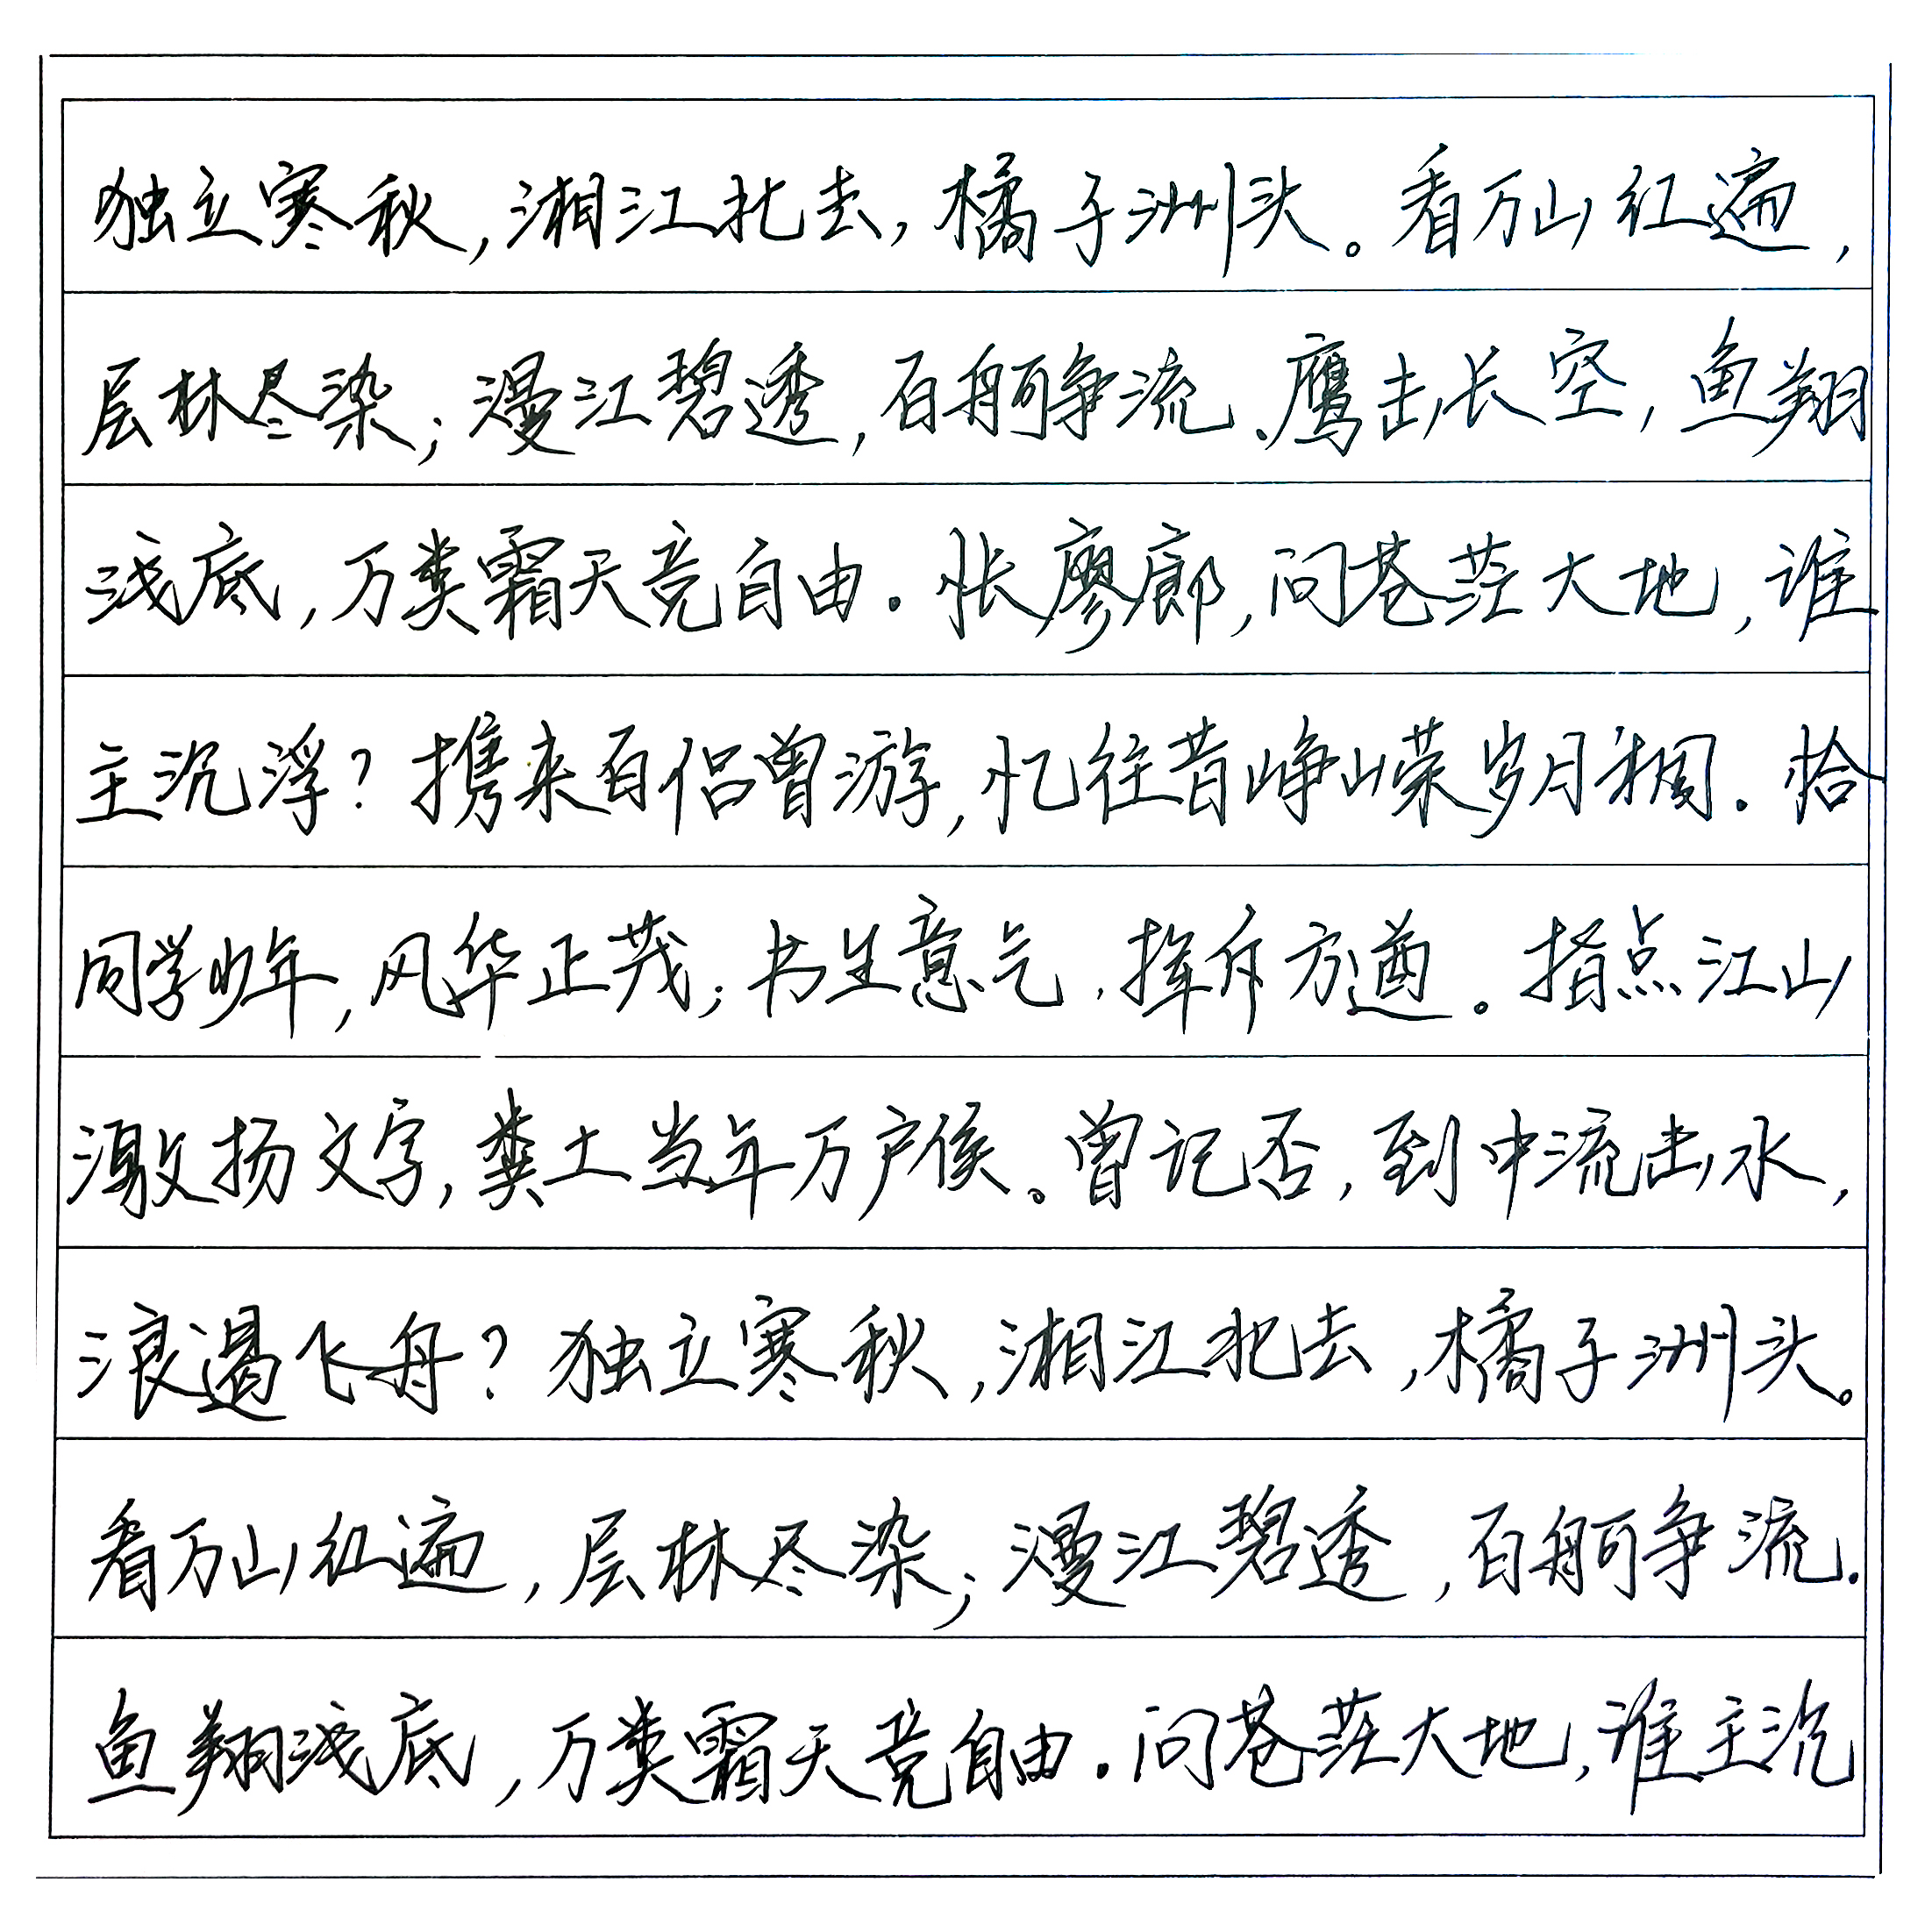 独立寒秋,湘江北去,橘子洲头。看万山红遍,
层林尽染;漫江碧透,百舸争流.鹰击长空,鱼翔
浅底,万类霜天竞自由.怅廖廓,问苍茫大地,谁
主沉浮?携来百侣曾游,忆往昔峥嵘岁月稠.恰
同学少年,风华正茂;书生意气,挥斥方遒。指点江山
激扬文字,粪土当年万户侯。曾记否,到中流击水,
浪遏飞舟?独立寒秋,湘江北去,橘子洲头。
看万山红遍,层林尽染;漫江碧透,百舸争流.
鱼翔浅底,万类霜天竞自由.问苍茫大地,谁主沉